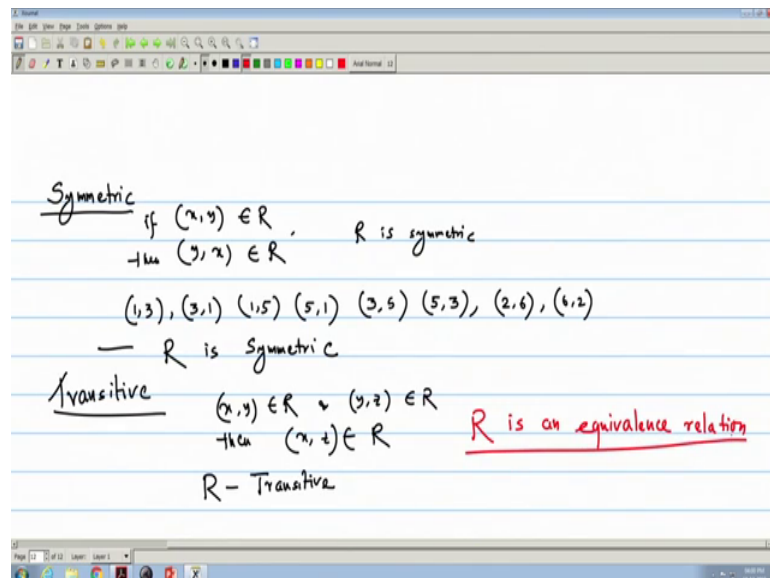 Journal
File Edit View Page Tools Options Help
Arial Normal 12
Symmetric
if (x,y) ∈ R
then (y,x) ∈ R. R is symmetric
(1,3), (3,1) (1,5) (5,1) (3,5) (5,3), (2,6), (6,2)
— R is Symmetric
Transitive
(x,y) ∈ R & (y,z) ∈ R
then (x,z) ∈ R
R is an equivalence relation
R – Transitive
Page 12 of 12 Layer: Layer 1